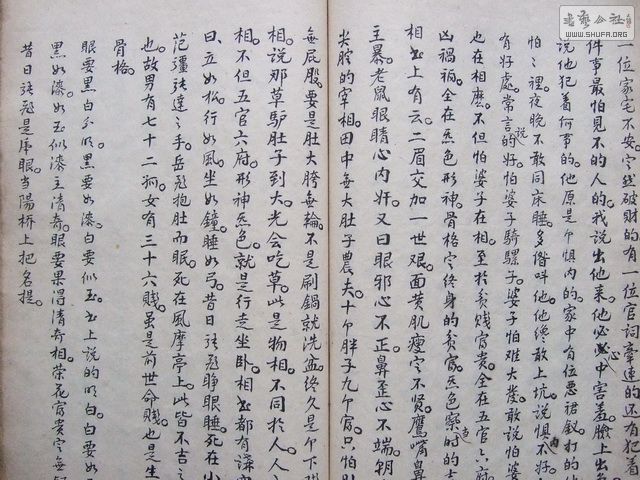 一位家宅不安定然破財的有一位官詞牽連的还有犯着
件事最怕見不的人的我説出他來他必心中害羞臉上出
説他犯着何事的他原是个惧内的家中有位恶裙釵打的他
怕裡夜晚不敢同床睡多偺呌他他终敢上坑説惧不好
有好處常言説的好怕婆子騎騾子婆子怕难大发敢説怕婆
也在相麽不但怕婆子在相至於貧賤富貴全在五官六府
凶禍福全在炁色形神骨格定終身的貧富炁色察时的吉
相书上有云二眉交加一世艰面黄肌瘦定不賢鷹嘴鼻
主暴老鼠眼睛心内奸又曰眼邪心不正鼻歪心不端朝
尖腔的宰相田中每大肚子農夫十个胖子九个富只怕
每屁股要是肚大胯每輪不是刷鍋就洗盆終久是个下
相説那草驴肚子到大光会吃草此是物相不同於人人
相不但五官六府形神炁色就是行走坐卧相书都有講究
曰立如松行如風坐如鐘睡如弓昔日張飛睁眼睡死在小
范疆張達之手岳飛抱肚而眠死在風摩亭上此皆不吉之
也故男有七十二孤女有三十六賤虽是前世命賤也是生
骨格
眼要黑白分明黑要如漆白要似玉书上説的明白白要如
黑如漆如玉似漆主清奇眼要果得清奇相荣花富貴定每
昔日張飛是虎眼当陽桥上把名提
書藝公社
WWW.SHUFA.ORG